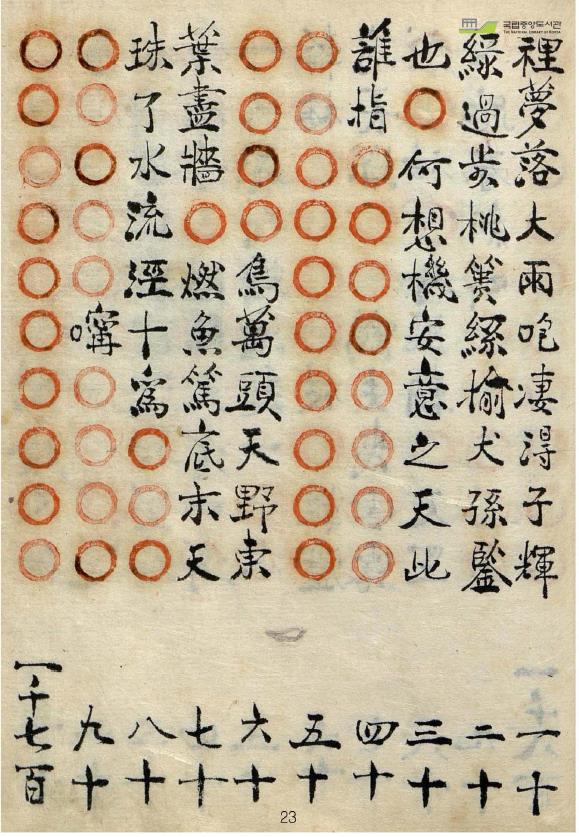 국립중앙도서관
THE NATIONAL LIBRARY OF KOREA
裡夢落大雨咆凄淂子輝 一十
綠過桃犬孫鑒 二十
也何想機安意之天此 三十
誰指 四十
五十
鳥萬頭天野東 六十
葉盡牆燃魚篤底末天 七十
珠了水流涇十寫 八十
嚀 九十
一千七百
23